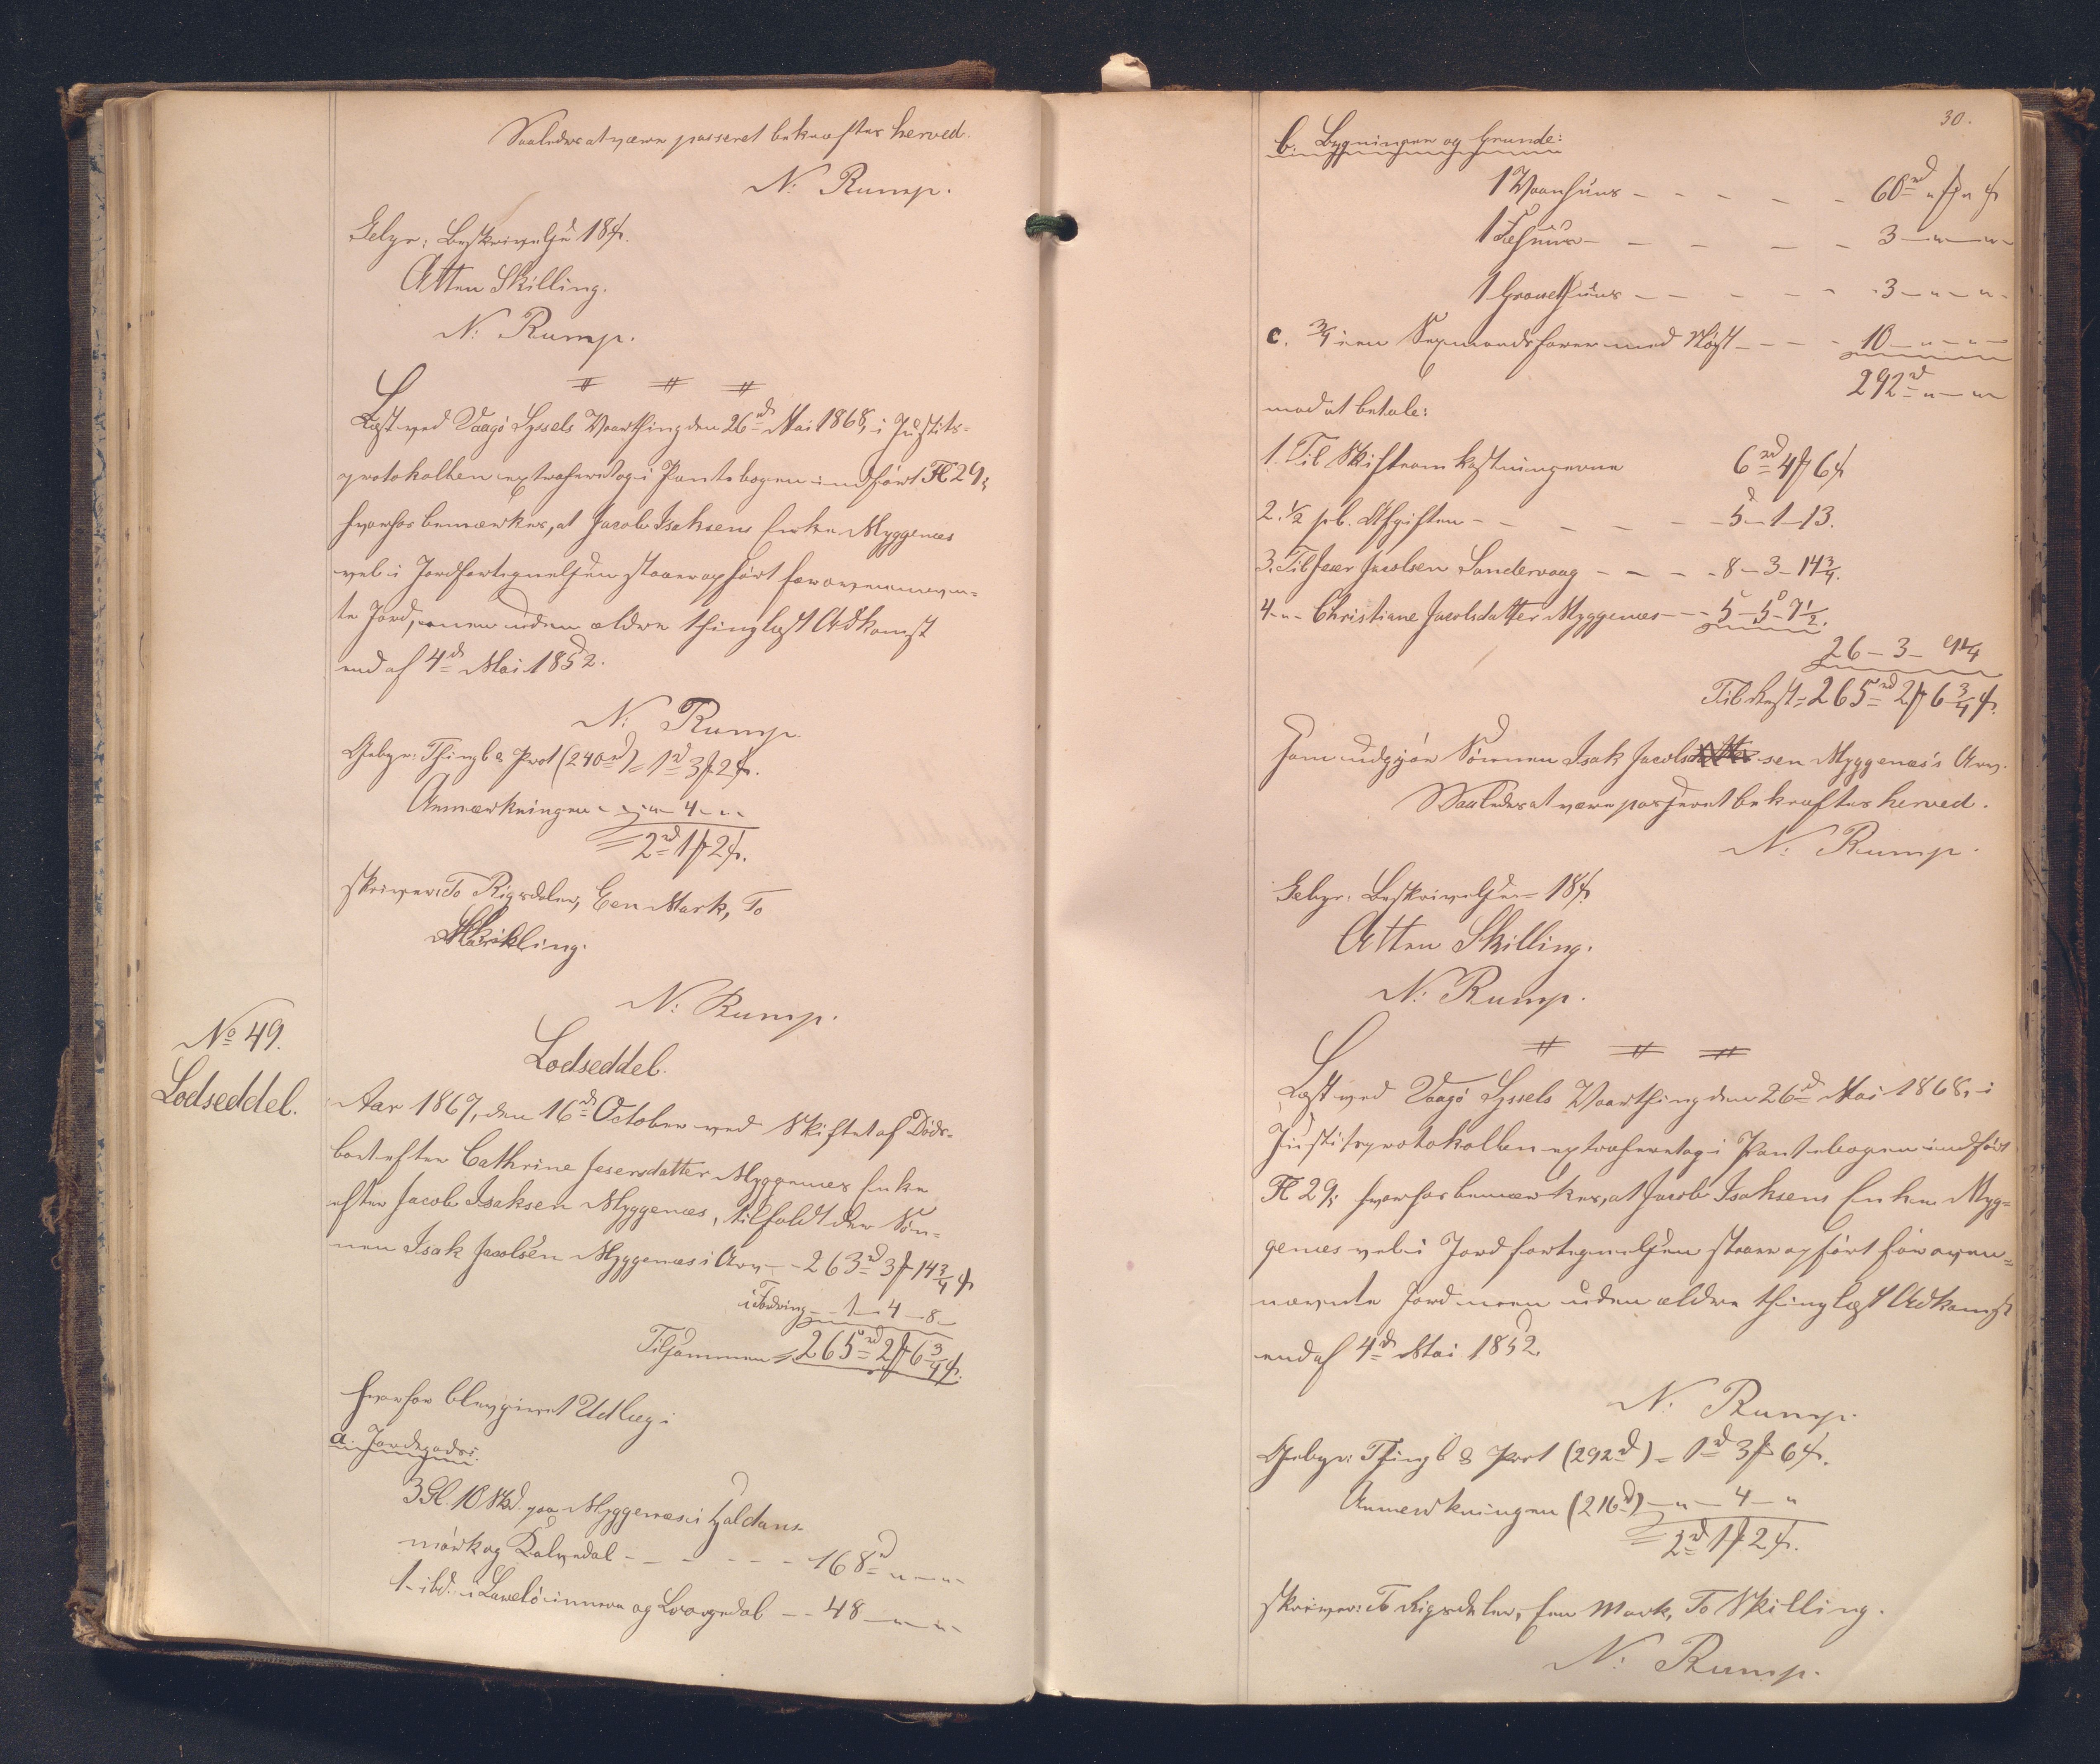 Saaledes at være passeret bekræftes herved.
N: Rump.
Gebyr: Beskrivelse 18 ß.
Atten Skilling.
N: Rump.
Læst ved Vaagø Syssels Vaarthing den 26d Mai 1868, i Justits-
protokollen extraheret og i Pantebogen indført Fl 29;
hvorhos bemærkes, at Jacob Isaksens Enke Myggenæs
vel i Jordfortegnelsen staaer opført for ovennævn-
te Jord, men uden ældre thinglæst Adkomst
end af 4d Mai 1852.
N: Rump.
Gebyr: Thingl & Prot (240rd) = 1rd 3 ꟙ 2 ß.
Anmærkningen - " - 4 - "
= 2rd 1 ꟙ 2 ß.
skriver: To Rigsdaler, Een Mark, To
Skilling.
N: Rump.
No 49.
Lodseddel.
Lodseddel.
Aar 1867, den 16d October ved Skiftet af Døds-
boet efter Cathrine Joensdatter Myggenæs Enke
efter Jacob Isaksen Myggenæs, tilfaldt der Søn-
nen Isak Jacobsen Myggenæs i Arv - - 263rd 3 ꟙ 14 3/4 ß
i Fordring - - 1 - 4 - 8 -
Tilsammen = 265rd 2 ꟙ 6 3/4 ß.
hvorfor blev givet Udlæg i
a. Jordegods:
3 Gl. 10 Skd. paa Myggenæs i
mørk og Kalvedal - - - - - - 168rd " - "
1 - ibd. i innen og - - 48 - " - "
30.
b. Bygninger og Grunde:
1 Vaanhuus - - - - - 60rd " ꟙ " ß
1 Fæhuus - - - - - 3 - " - " -
1 huus - - - - - 3 - " - " -
c. 3/4 i en Sexmandsfarer med Nøgst - - - - 10 - " - " -
292rd " - "
mod at betale:
1. Til Skifteomkostningerne 6rd 4 ꟙ 6 ß
2. 1/2 pCt. Afgiften - - - - - 5 - 1 - 13.
3. Til Joen Jacobsen Sandevaag - - - 8 - 3 - 14 3/4.
4 - " - Christiane Jacobsdatter Myggenæs - - 5 - 5 - 7 1/2.
26 - 3 - 9 1/4
Til Rest = 265rd 2 ꟙ 6 3/4 ß.
som udgjør Sønnen Isak Jacobs sen Myggenæs's Arv.
Saaledes at være passeret bekræftes herved.
N: Rump.
Gebyr: Beskrivelse = 18 ß.
Atten Skilling.
N: Rump.
Læst ved Vaagø Syssels Vaarthing den 26d Mai 1868, i
Justitsprotokollen extraheret og i Pantebogen indført
Fl 29; hvorhos bemærkes, at Jacob Isaksens Enke Myg-
genæs vel i Jordfortegnelsen staaer opført for oven-
nævnte Jord men uden ældre thinglæst Adkomst
end af 4d Mai 1852.
N: Rump.
Gebyr: Thingl & Prot (292rd) = 1rd 3 ꟙ 6 ß.
Anmærkningen (216rd) - " - 4 - "
= 2rd 1 ꟙ 2 ß.
skriver: To Rigsdaler, Een Mark, To Skilling.
N: Rump.